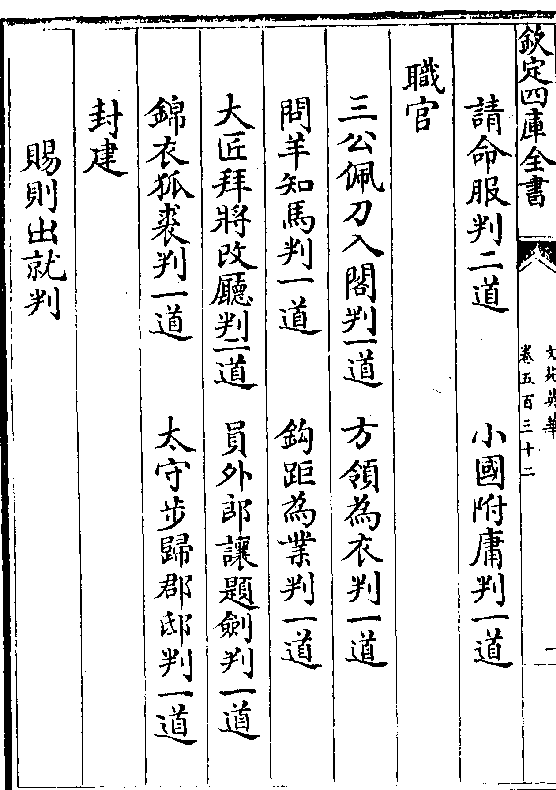 欽定四庫全書
文苑英華
卷五百三十二
一
請命服判二道 小國附庸判一道
職官
三公佩刀入閤判一道 方領為衣判一道
問羊知馬判一道 鈎距為業判一道
大匠拜將改廳判二道 員外郎讓題劍判一道
錦衣狐裘判一道 太守步歸郡邸判一道
封建
賜則出就判